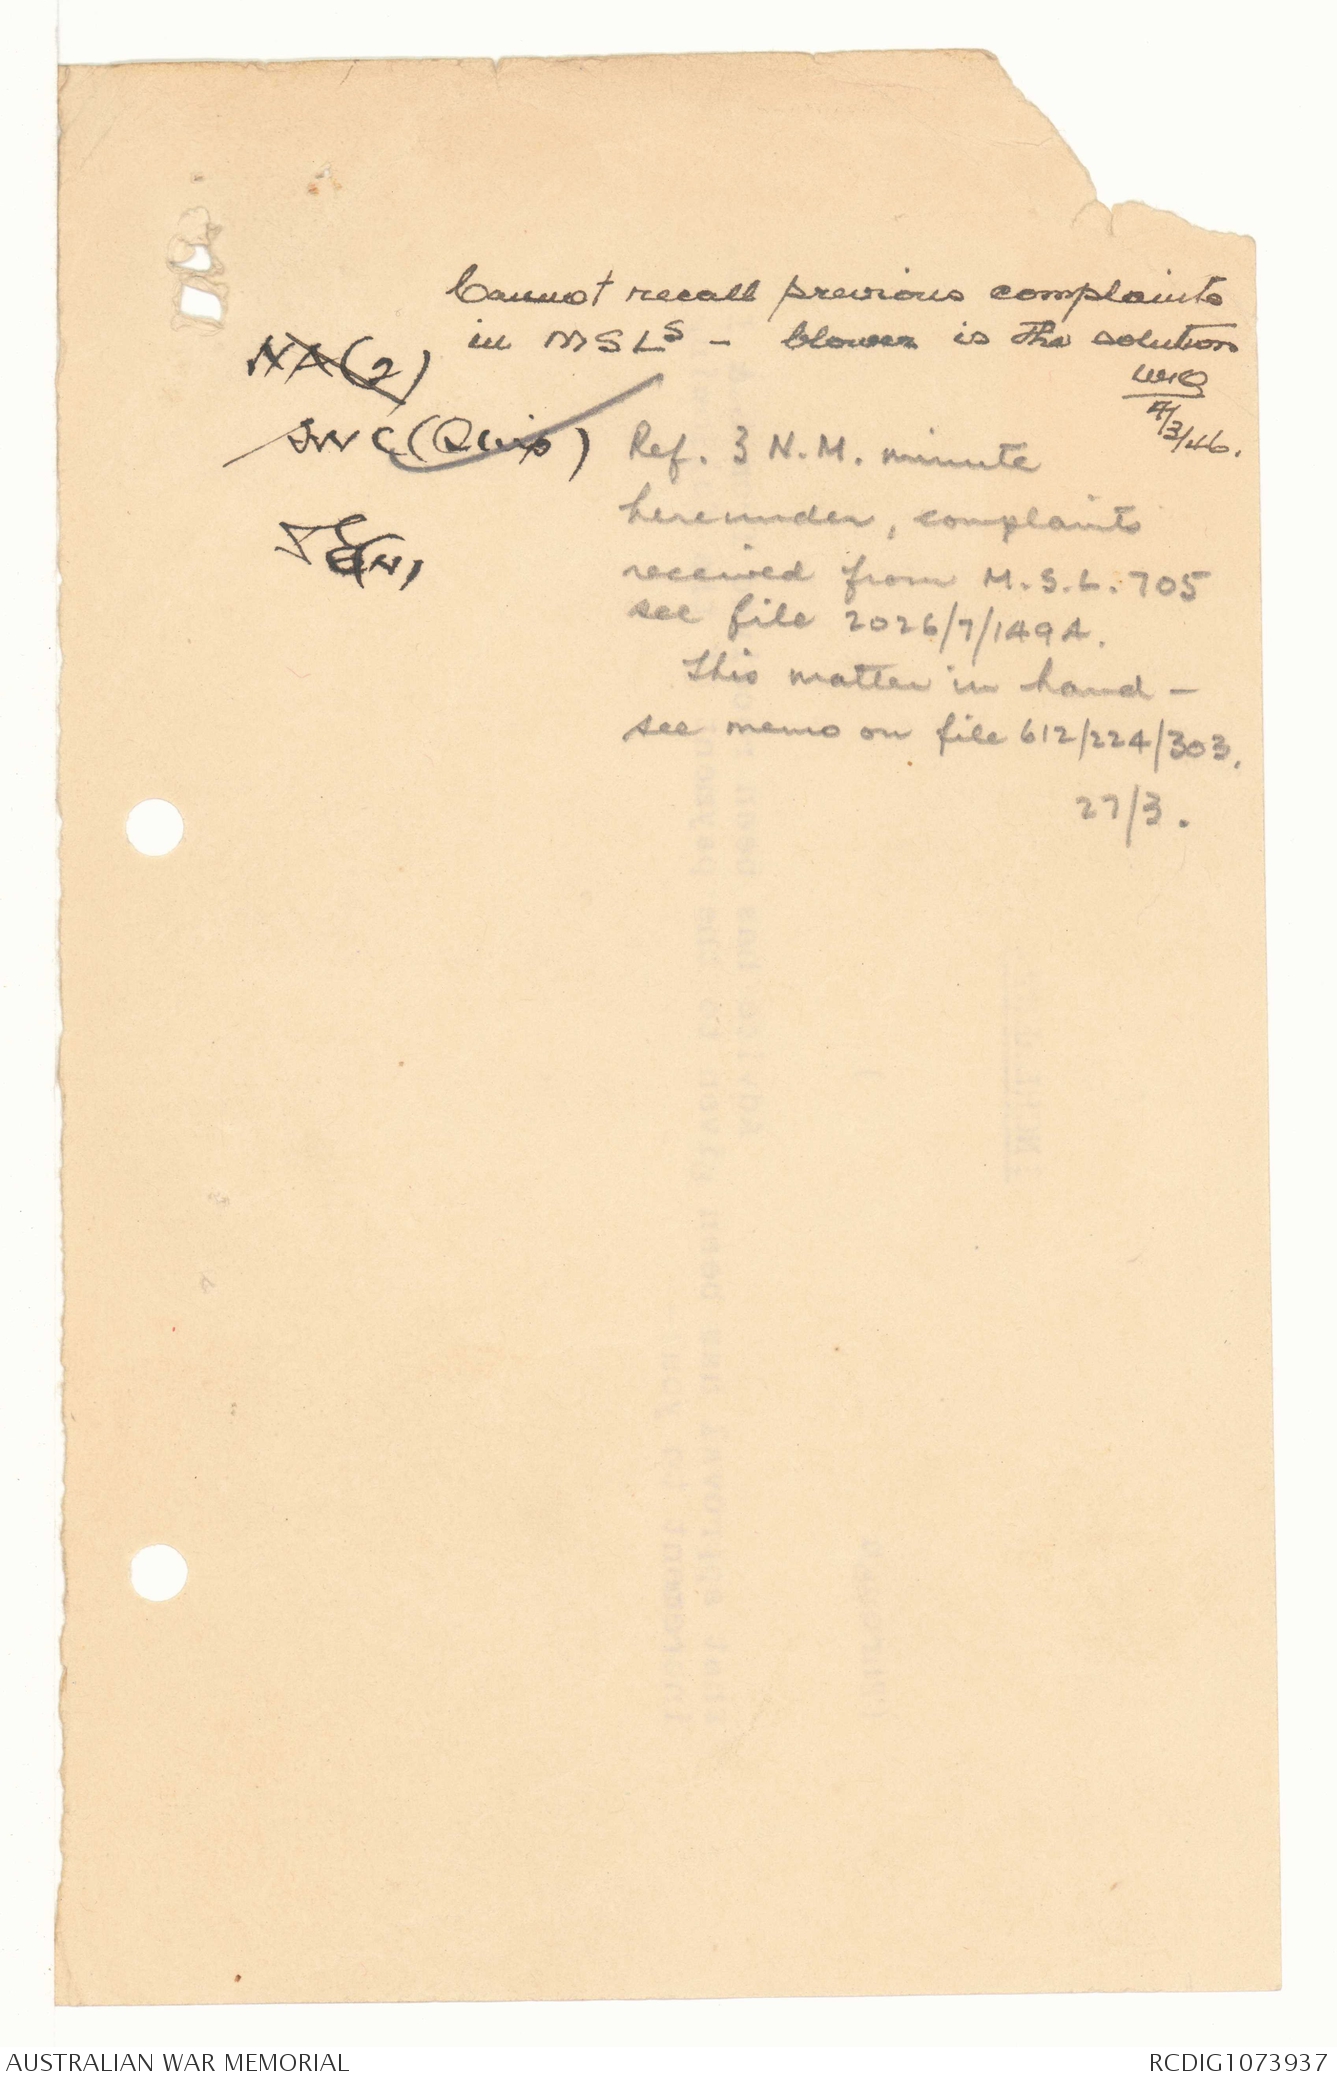 Cannot recall previous complaints
in MSLs - blower is the solution
NA(2)
4/3/46.
Ref. 3 N.M. minute
hereunder, complaints
received from M.S.L. 705
see file 2026/7/149A.
This matter in hand -
see memo on file 612/224/303.
27/3.
AUSTRALIAN WAR MEMORIAL
RCDIG1073937